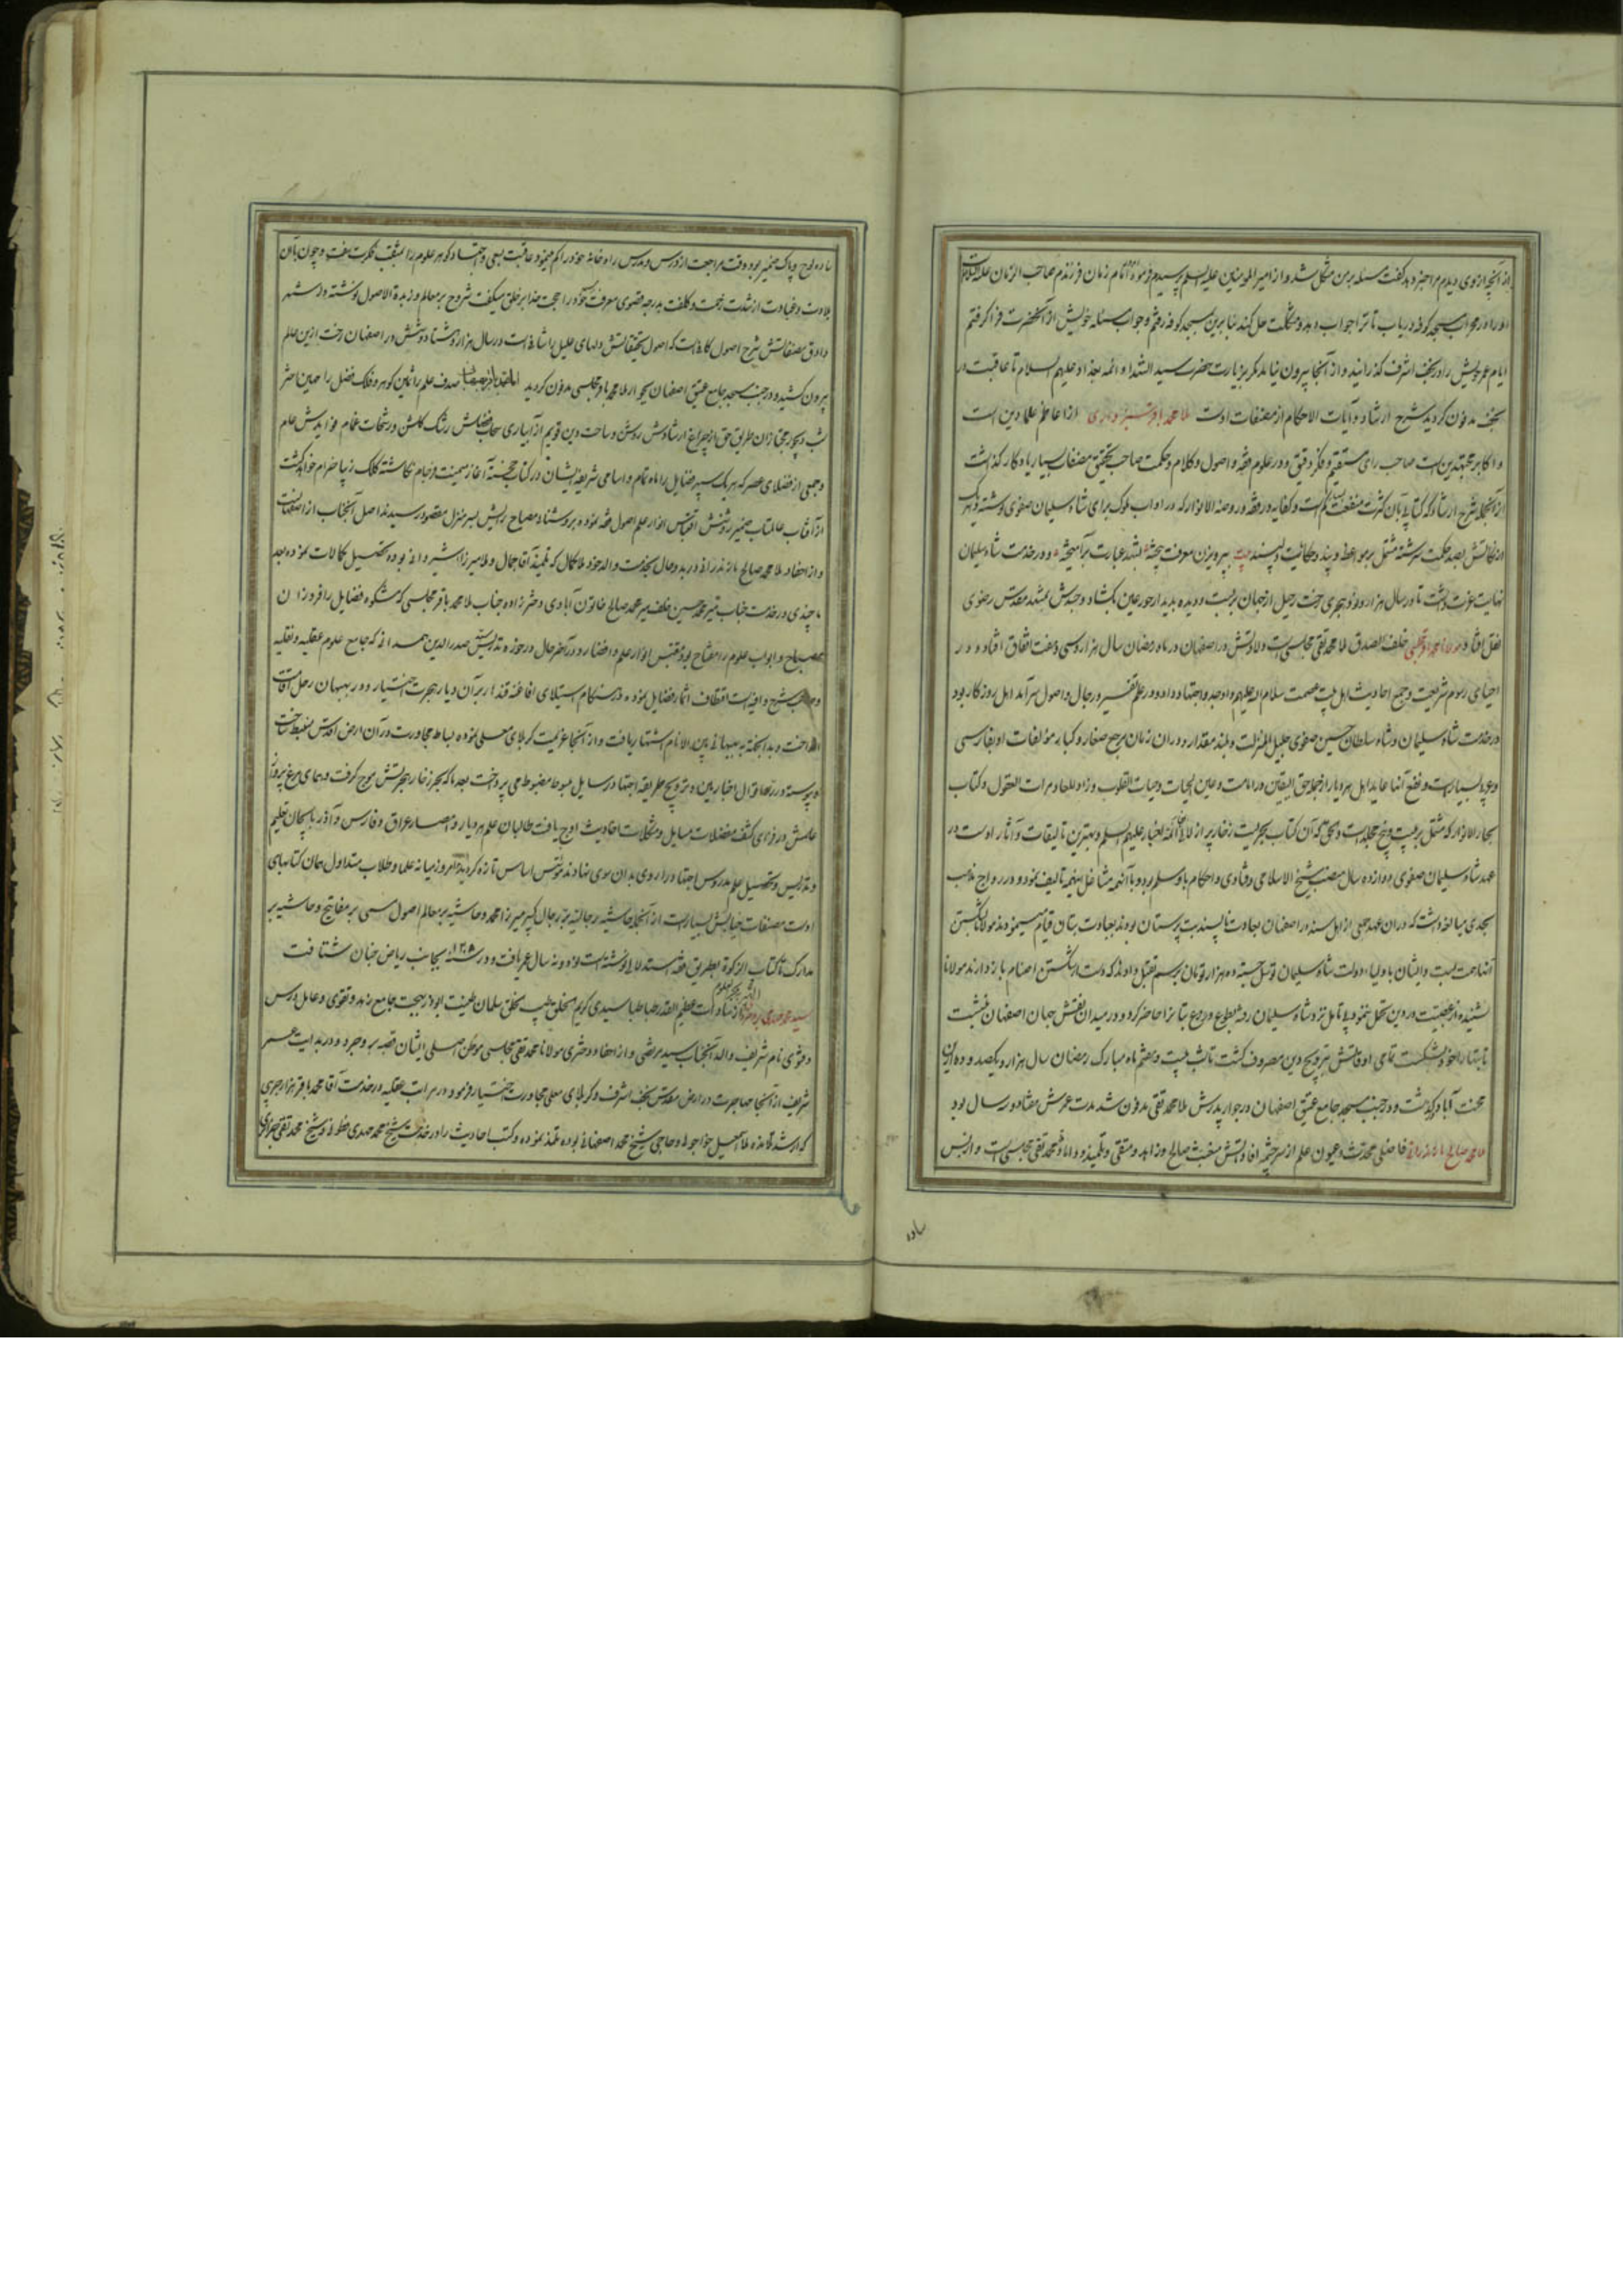 از آنچه از وی دیدم مرا خبر دهد گفت مسئله بر من مشکل شد و از امیر المومنین علیه السلم پرسیدم فرمود امام زمان فرزندم صاحب الزمان علیه السلام
او را در محراب مسجد کوفه دریاب تا ترا جواب دهد و مشکلت حل کند بنابرین بمسجد کوفه رفتم و جواب مسئله خویش از آنحضرت فرا گرفتم
ایام عمر خویش را در نجف اشرف گذرانید و از آنجا بیرون نیامد مگر بزیارت حضرت سید الشهدا و ائمه بغداد علیهم السلام تا عاقبت در
نجف مدفون گردید شرح ارشاد و آیات الاحکام از مصنفات اوست ملا محمد باقر سبزواری از اعاظم علماء دین است
و اکابر مجتهدین است صاحب رای مستقیم و فکر دقیق و در علوم فقه و اصول و کلام و حکمت صاحب تحقیق مصنفات بسیار یادگار گذاشت
از آنجمله شرح ارشاد که کتابی بآن کثرت منفعت کم است و کفایه در فقه و روضة الانوار که در آداب ملوک برای شاه سلیمان صفوی نوشته
مشتمل بر مواعظ و پند و حکایت دلپسند بیت بپرویزن معرفت بیخته بشهد عبارت برآمیخته و در خدمت شاه سلیمان
نهایت عزت داشت تا در سال هزار و نود هجری رخت رحیل از جهان بربست و دیده بدیدار حور عین بگشاد و جسدش بمشهد مقدس رضوی
نقل افتاد مولانا محمد باقر مجلسی خلف الصدق ملا محمد تقی مجلسی است ولادتش در اصفهان در ماه رمضان سال هزار و سی و هفت اتفاق افتاد و در
احیای رسوم شریعت و جمع احادیث اهل بیت عصمت سلام الله علیهم و اجتهاد داد و در علم تفسیر و رجال و اصول سرآمد اهل روزگار بود
در خدمت شاه سلیمان و شاه سلطان حسین صفوی جلیل المنزلت و بلند مقدار و در آن زمان مرجع صغار و کبار مولفات او بفارسی
و عربی بسیار است و نفع آنها عاید اهل هر دیار از جمله حق الیقین در امامت و عین الحیات و حیات القلوب و زاد المعاد و مرات العقول و کتاب
بحار الانوار که مشتمل بر بیست و پنج مجلد است و بحق که آن کتاب بحریست زخار پر از لالی ائمه اخیار علیهم السلم و بهترین تالیفات و آثار اوست در
عهد شاه سلیمان صفوی دوازده سال منصب شیخ الاسلامی و فتاوی و احکام باو مسلم بود و با آنهمه مشاغل اینهمه تالیف نمود و در رواج مذهب
بجدی مبالغه داشت که در آن عهد جمعی از اهل هند در اصفهان بعادت ناپسند بت پرستان بودند بعبادت بتان قیام مینمودند مولانا بشکستن
آنها همت بست و ایشان باولیاء دولت شاه سلیمان توسل جسته ده هزار تومان برسم تقبل دادند که دست از شکستن اصنام باز دارند مولانا
شنیده از عصبیت در دین تحمل ننمود بی تامل نزد شاه سلیمان رفته بطوع و رجوع بتانرا حاضر کرد و در میدان نقش جهان اصفهان
تا بتانرا خود شکست تمامی اوقاتش بترویج دین مصروف گشت تا شب بیست و هفتم ماه مبارک رمضان سال هزار و یکصد و ده ازین
محنت آباد درگذشت و در جنب مسجد جامع عتیق اصفهان در جوار پدرش ملا محمد تقی مدفون شد مدت عمرش هفتاد و سه سال بود
ملا محمد صالح مازندرانی فاضلی محدث و عیون علم از سرچشمه افاداتش صالح و زاهد و متقی و تلمیذ و داماد محمد تقی مجلسی است و از بس
ساده
ساده لوح و پاک ضمیر بود وقت مراجعت از درس و مدرس راه خانه خود را گم مینمود عاقبت بسعی و اجتهاد گوهر علوم را بمثقب فکرت بسفت و چون بآن
بلادت و غباوت از شدت زحمت و کلفت بدرجه قصوی معرفت خود را حجت خدا بر خلق میگفت شروح بر معالم و زبدة الاصول نوشته و از مشهر
و ادق مصنفاتش شرح اصول کافی است که اصول تحقیقاتش دلهای علیل را شافی است در سال هزار و هشتاد و شش در اصفهان رخت ازین عالم
بیرون کشید و در جنب مسجد جامع عتیق اصفهان بجوار ملا محمد باقر مجلسی مدفون گردید صدف علم را ثمین گوهر و فلک فضل را
شب دیجور مجتازان طریق حق از چراغ ارشادش روشن و ساحت دین قویم از آبیاری سحاب فضایلش رشک گلشن و رشحات غمام فوایدش عام
و جمعی از فضلای عصر که هر یک سپهر فضایل را ماه تمام و اسامی شریفه ایشان در کتاب خجسته آغاز میمنت فرجام نگاشته کلک زیبا خرام خواهد گشت
از آفتاب عالمتاب ضمیر روشنش اقتباس انوار علم اصول فقه نموده بروشنائی مصباح رایش بسر منزل مقصود رسیدند اصل آنجناب از اصفهانست
و از احفاد ملا محمد صالح مازندرانی در بدو حال بخدمت والد خود ملا کمال که تلمیذ آقا جمال و ملا میرزا شیروانی بوده تحصیل کمالات نموده بعد
چندی در خدمت جناب میر محمد حسین خلف میر محمد صالح خاتون آبادی دختر زاده جناب ملا محمد باقر مجلسی که مشکوه فضایل را فروزان
مصباح و ابواب علوم را مفتاح بود مقتبس انوار علم و افضال و در آخر حال در حوزه تدریس سید صدر الدین همدانی که جامع علوم عقلیه و نقلیه
و صاحب شرح وافیه است اقتطاف اثمار فضایل نموده در هنگام استیلای افاغنه قندهار بر آن دیار هجرت اختیار و در بهبهان رحل اقامت
انداخت و بدانجهة به بهبهانی بین الانام اشتهار یافت و از آنجا عزیمت کربلای معلی نموده بساط مجاورت در آن ارض اقدس منبسط ساخت
و پیوسته در رد اقوال اخباریین و ترویج طریقه اجتهاد رسایل مبسوط مضبوط می پرداخت بعد ما که بحر زخار تبحرتش موج گرفت و همای مرغ پرواز
علمش در هوای کشف معضلات مسایل و مشکلات احادیث اوج یافت طالبان علم هر دیار و امصار عراق و فارس و آذربایجان تعلیم
و تدریس و تحصیل علم بمدروس اجتهاد را روی بدان سوی نهادند مؤسس اساس تازه گردید امروز میانه علما و طلاب متداول همان کتابهای
اوست مصنفات جنابش بسیار است از آنجمله حاشیه رجالیه بر رجال کبیر میرزا محمد و حاشیه بر معالم اصول سمی بر مفاتیح و حاشیه بر
مدارک تا کتاب الزکوة بطریق فقه استدلالی نوشته است نود و نه سال عمر یافت و در سنه ۱۲۰۵ بجانب ریاض جنان شتافت
الملقب ببحر العلوم
سید محمد مهدی بروجردی از سادات عظیم القدر طباطبا سیدی کریم الخلق طیب خلق سلمان طینت ابوذر سجیت جامع زهد و تقوی و عامل درس
و فتوی نام شریف والد آنجناب سید مرتضی و از احفاد دختری مولانا محمد تقی مجلسی موطن اصلی ایشان قصبه بروجرد و در بدایت عمر
شریف از آنجا مهاجرت در ارض مقدس نجف اشرف و کربلای معلی مجاورت اختیار فرمود و در مراتب عقلیه در خدمت آقا محمد باقر هزار جریبی
که ارشد تلامذه ملا اسمعیل خواجوئی و حاجی شیخ محمد اصفهانی بوده تلمذ نموده و کتب احادیث را در خدمت شیخ محمد مهدی فتونی و شیخ محمد تقی